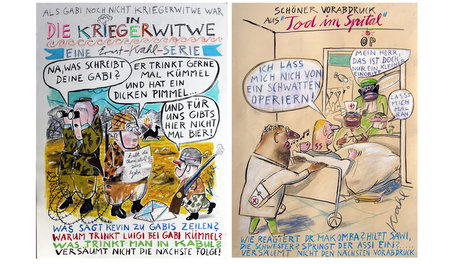 ALS GABI NOCH NICHT KRIEGERWITWE WAR
IN
DIE KRIEGERWITWE
EINE Ernst-Kahl-SERIE
NA, WAS SCHREIBT
DEINE GABI?
ER TRINKT GERNE
MAL KÜMMEL
UND HAT EIN
DICKEN PIMMEL...
UND FÜR
UNS GIBTS
HIER NICHT
MAL BIER!
WAS SAGT KEVIN ZU GABIS ZEILEN?
WARUM TRINKT LUIGI BEI GABI KÜMMEL?
WAS TRINKT MAN IN KABUL?
VERSÄUMT NICHT DIE NÄCHSTE FOLGE!
SCHÖNER VORABDRUCK
AUS "Tod im Spital"
OP
ICH LASS
MICH NICH VON
EIN SCHWATTEN
OPERIERN!
MEIN HERR,
DAS IST DOCH
NUR EIN
LASS
MICH
MAL
RAN
Kahl
WIE REAGIERT DR MAKOMBA? HILFT SAWI,
DIE SCHWESTER? SPRINGT DER ASSI EIN?....
VERSÄUMT NICHT DEN NÄCHSTEN VORABDRUCK